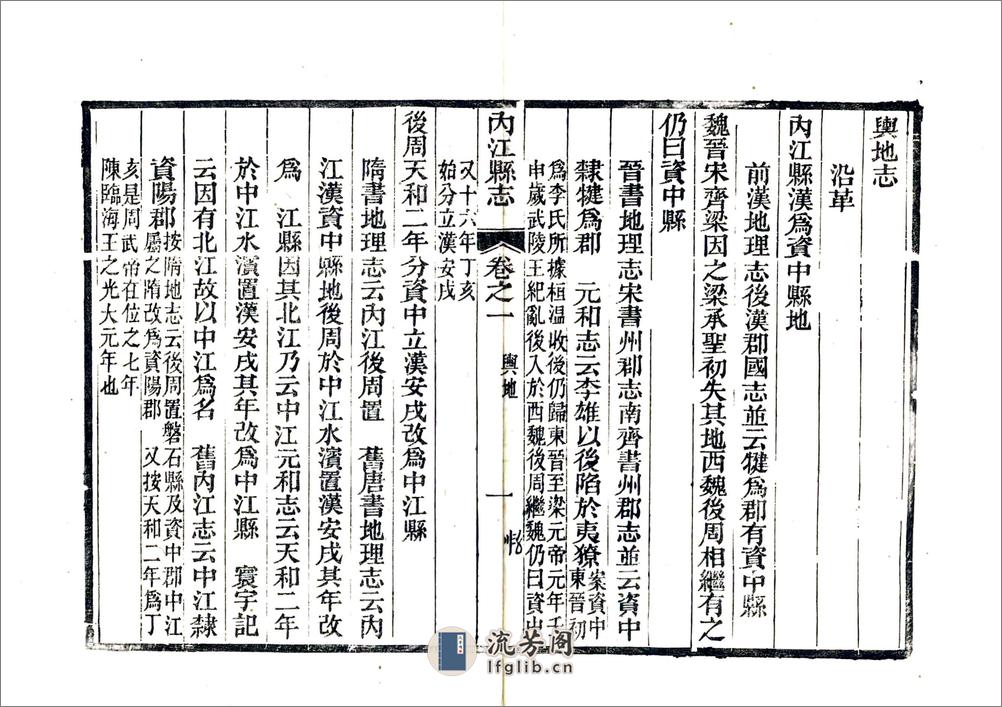 輿地志
沿革
內江縣漢為資中縣地
前漢地理志後漢郡國志並云犍為郡有資中縣
魏晉宋齊梁因之梁承聖初失其地西魏後周相繼有之
仍曰資中縣
晉書地理志宋書州郡志南齊書州郡志並云資中
隸犍為郡 元和志云李雄以後陷於夷獠案資中東晉初
為李氏所據桓温收後仍歸東晉至梁元帝元年壬
申歲武陵王紀亂後入於西魏後周繼魏仍曰資中
內江縣志 卷之一 輿地 一
又十六年丁亥
始分立漢安戌
後周天和二年分資中立漢安戌改為中江縣
隋書地理志云內江後周置 舊唐書地理志云內
江漢資中縣地後周於中江水濱置漢安戌其年改
為 江縣因其北江乃云中江元和志云天和二年
於中江水濱置漢安戌其年改為中江縣 寰宇記
云因有北江故以中江為名 舊內江志云中江隸
資陽郡按隋地志云後周置磐石縣及資中郡中江
屬之隋改為資陽郡 又按天和二年為丁
亥是周武帝在位之七年
陳臨海王之光大元年也
流芳阁
lfglib.cn